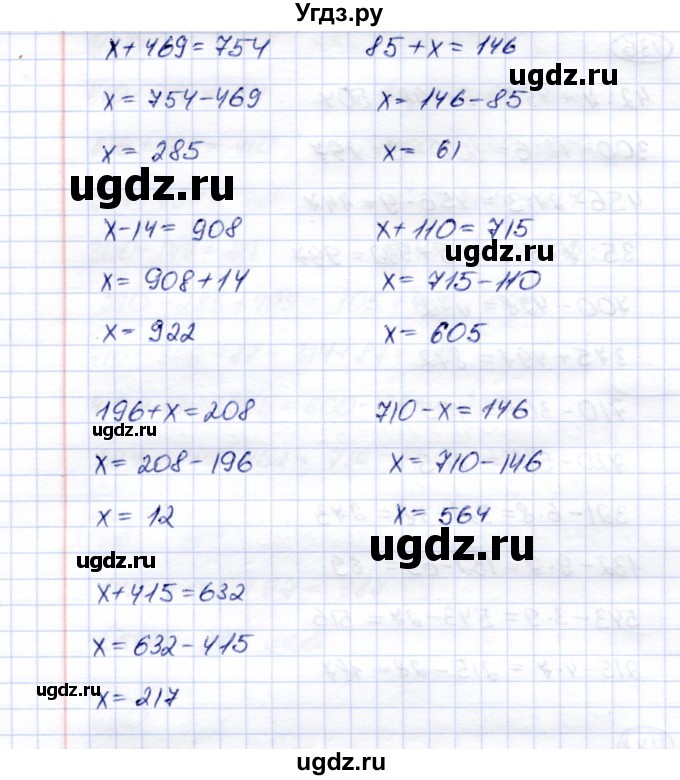 Угдз.ру
x+469=754
x=754-469
x=285
85+x=146
x=146-85
x=61
ugdz.ru
ugdz.ru
x-14=908
x=908+14
x=922
x+110=715
x=715-110
x=605
ugdz.ru
196+x=208
x=208-196
x=12
710-x=146
x=710-146
x=564
ugdz.ru
ugdz.ru
ugdz.ru
x+415=632
x=632-415
x=217
ugdz.ru
ugdz.ru
ugdz.ru